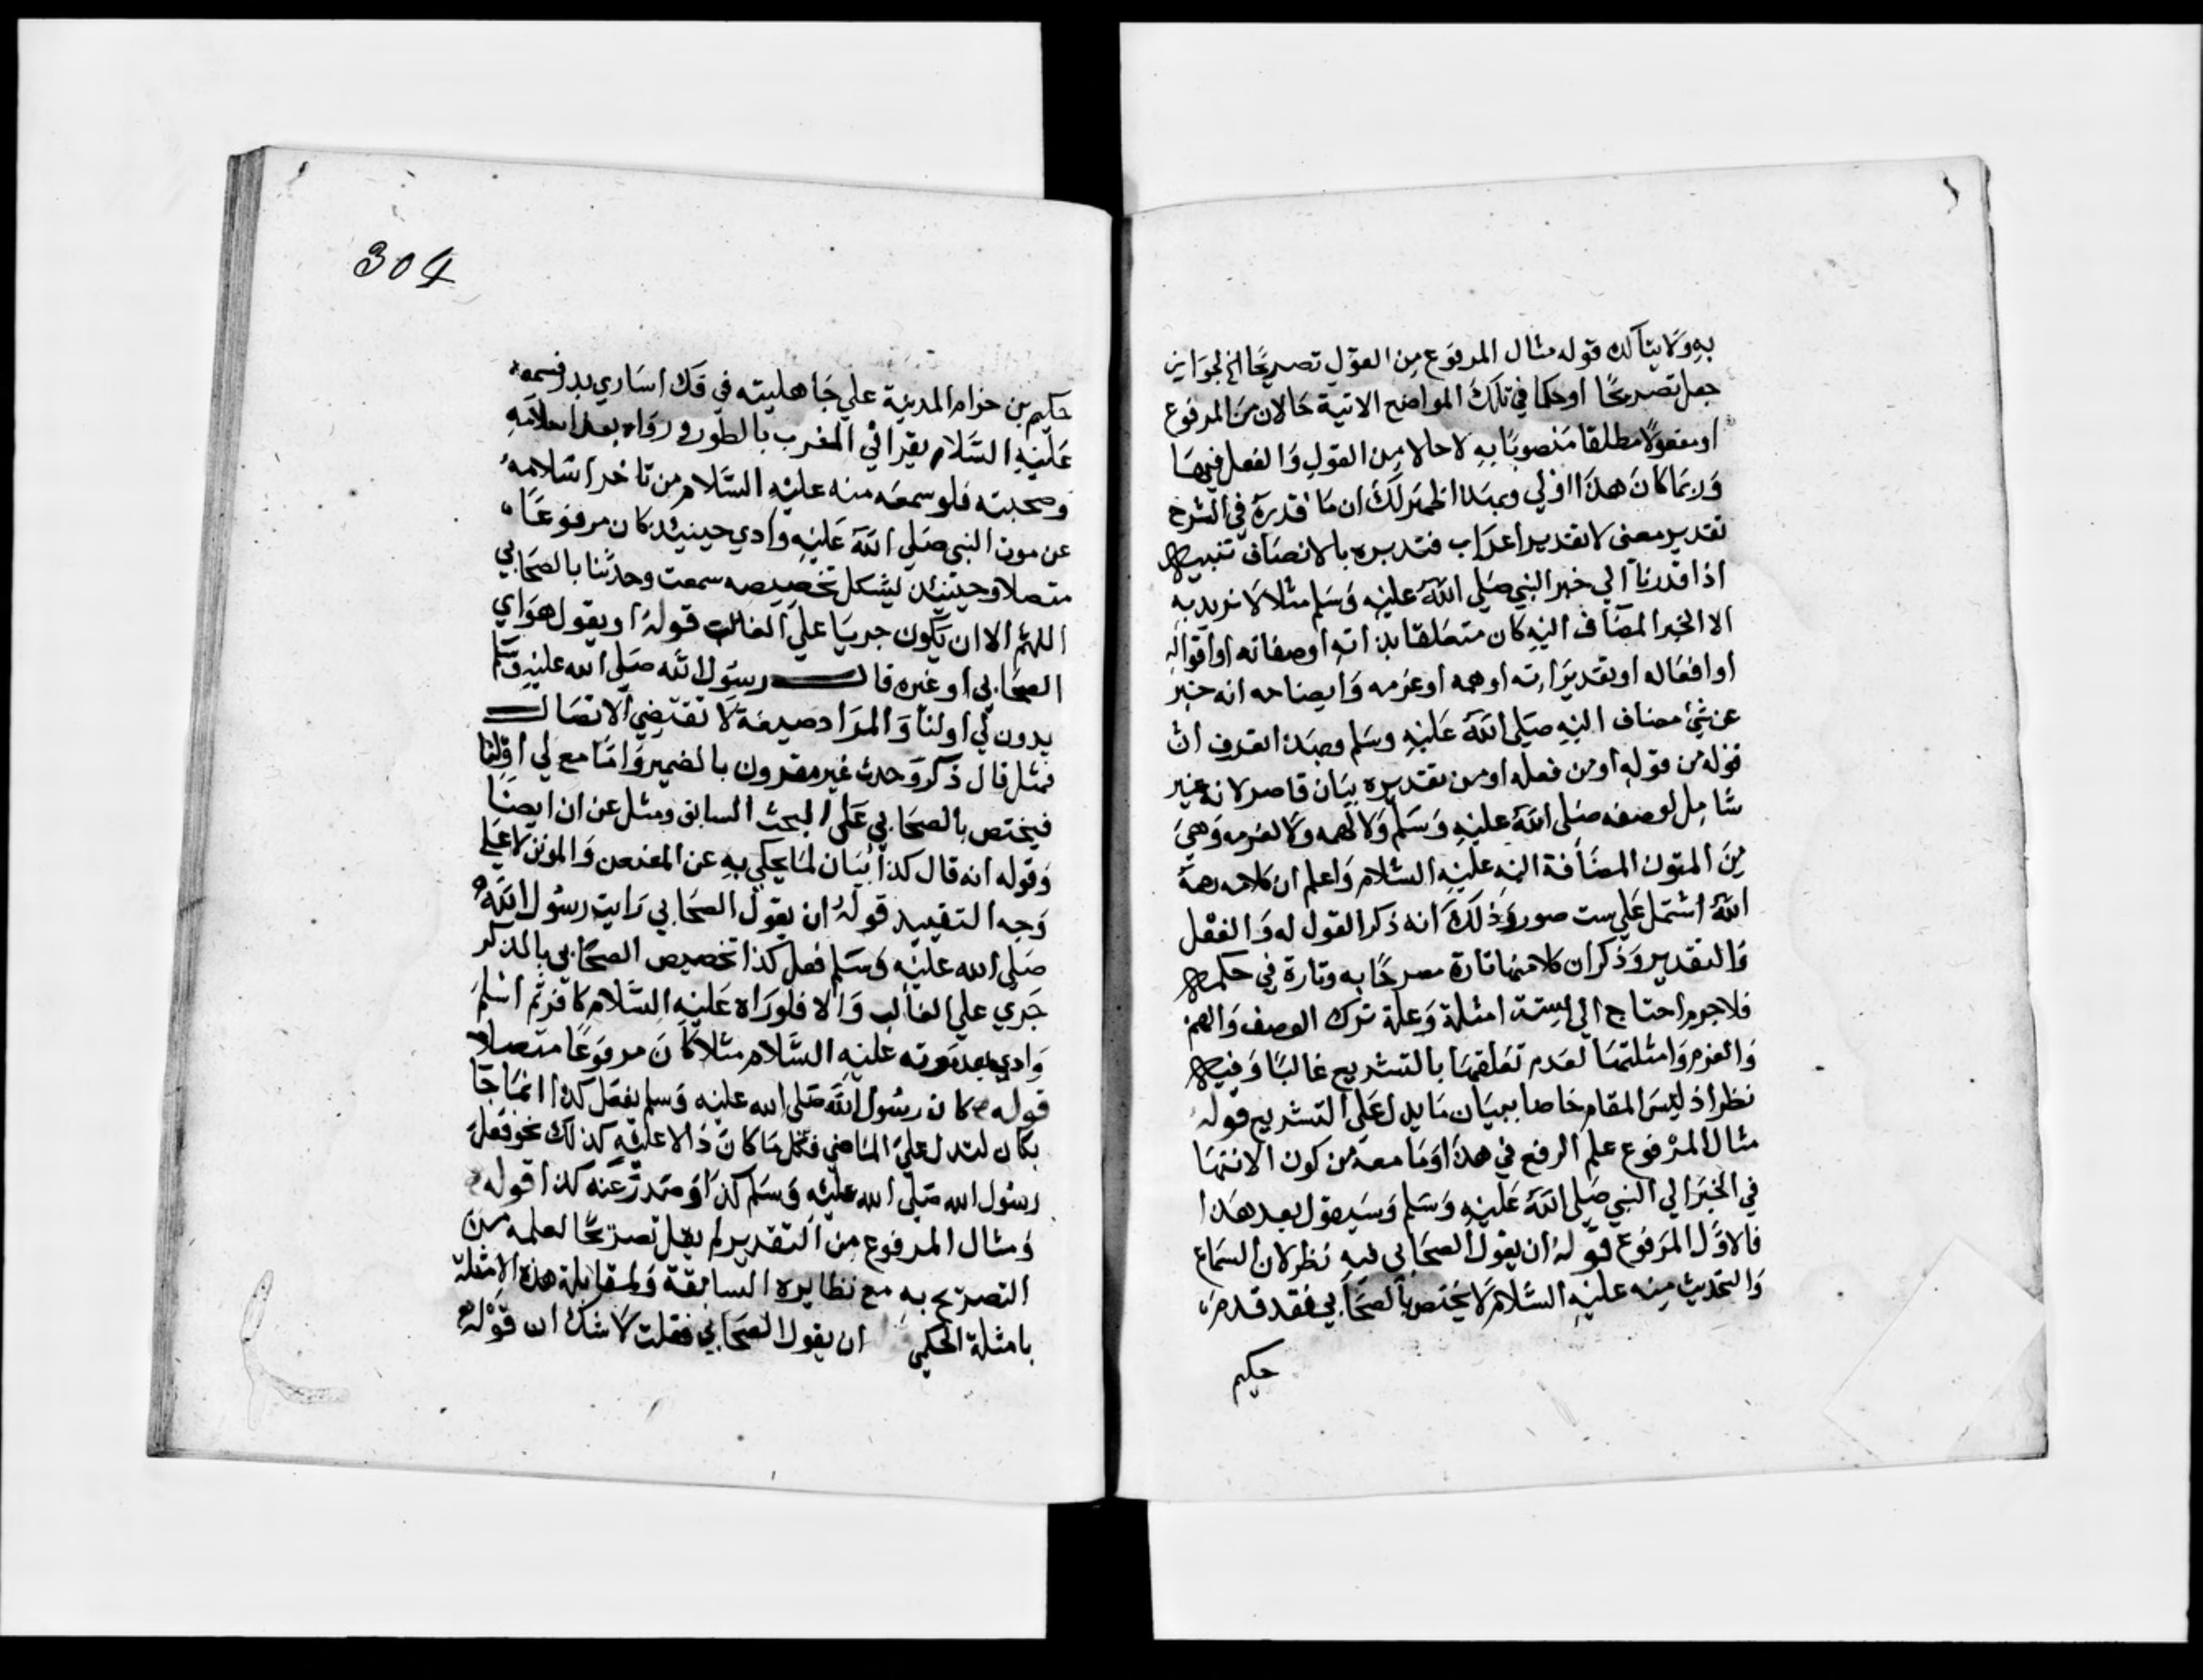 به ولا يتاكد قوله مثال المرفوع من القول تصريحًا الخ لجواز
جعل تصريحًا او حكما في تلك المواضع الاتية حالان من المرفوع
او مفعولا مطلقا منصوبًا به لا حالا من القول والفعل فيهما
وربما كان هذا اولي وبهذا ظهر لك ان ما قدره في الشرح
تقدير معنى لا تقدير اعراب فتدبره بالانصاف تنبيه
اذا قدرنا الي خبر النبي صلي الله عليه وسلم مثلا لا نريد به
الا الخبر المضاف اليه كان متعلقا بذاته او صفاته او اقواله
او افعاله او تقديراته او همه او عزمه وايضاحه انه خبر
عن شئ مضاف اليه صلي الله عليه وسلم وبهذا تعرف ان
قوله من قوله او من فعله او من تقديره بيان قاصر لانه غير
شامل لوصفه صلي الله عليه وسلم ولا لهمه ولا لعزمه وهي
من المتون المضافة اليه عليه السلام واعلم ان كلامه رحمة
الله اشتمل علي ست صور وذلك انه ذكر القول له والفعل
والتقدير وذكر ان كلا منها تارة مصرحًا به وتارة في حكمه
فلا جرم احتاج الي ستة امثلة وعلة ترك الوصف والهم
والعزم وامثلتها لعدم تعلقها بالتشريع غالبًا وفيه
نظر اذ ليس المقام خاصا ببيان ما يدل علي التشريع قوله
مثال المرفوع علم الرفع في هذا وما معه من كون الانتها
في الخبر الي النبي صلي الله عليه وسلم وسيقول بعد هذا
فالاول المرفوع قوله ان يقول الصحابي فيه نظر لان السماع
والتحديث منه عليه السلام لا يختص بالصحابي فقد قدم
حكيم
304
حكيم بن حزام المدينة علي جاهليته في فك اساري بدر فسمعه
عليه السلام يقرا في المغرب بالطور ورواه بعد اسلامه
وصحبته فلو سمعه منه عليه السلام من تاخر اسلامه
عن موت النبي صلي الله عليه وادي حينيئذ كان مرفوعًا
متصلا وحينيئذ يشكل تخصيصه سمعت وحدثنا بالصحابي
اللهم الا ان يكون جريا علي الغالب قوله او يقول هو اي
الصحابي او غيره قال رسول الله صلي الله عليه وسلم
بدون لي او لنا والمراد صيغة لا تقتضي الاتصال
فمثل قال ذكر وحدث غير مقرون بالضمير واما مع لي او لنا
فيختص بالصحابي علي البحث السابق ومثل عن ان ايضا
وقوله انه قال كذا بيان لما يحكي به عن المعنعن والمونن لا علي
وجه التقييد قوله ان يقول الصحابي رايت رسول الله
صلي الله عليه وسلم فعل كذا تخصيص الصحابي بالذكر
جري علي الغالب والا فلو راه عليه السلام كافر ثم اسلم
وادي بعد موته عليه السلام مثلا كان مرفوعًا متصلا
قوله كان رسول الله صلي الله عليه وسلم يفعل كذا انما جا
بكان لتدل علي الماضي فكل ما كان دالا عليه كذلك نحو فعل
رسول الله صلي الله عليه وسلم كذا او صدر عنه كذا قوله
ومثال المرفوع من التقدير لم يقل تصريحًا لعلمه من
التصريح به مع نظايره السابقة ولمقابلة هذه الامثلة
بامثلة الحكمي ان يقول الصحابي فقلت لا شك ان قوله